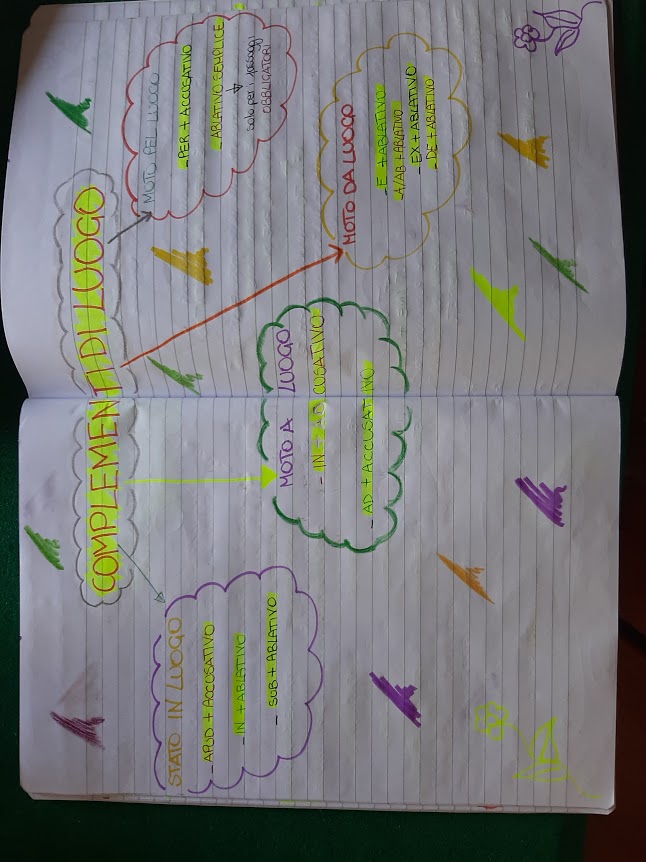 COMPLEMENTI DI LUOGO
STATO IN LUOGO
- APUD + ACCUSATIVO
- IN + ABLATIVO
- SUB + ABLATIVO
MOTO A LUOGO
- IN + ACCUSATIVO
- AD + ACCUSATIVO
MOTO DA LUOGO
- E + ABLATIVO
- A/AB + ABLATIVO
- EX + ABLATIVO
- DE + ABLATIVO
MOTO PEL LUOGO
- PER + ACCUSATIVO
- ABLATIVO SEMPLICE
solo per i passaggi
OBBLIGATORI